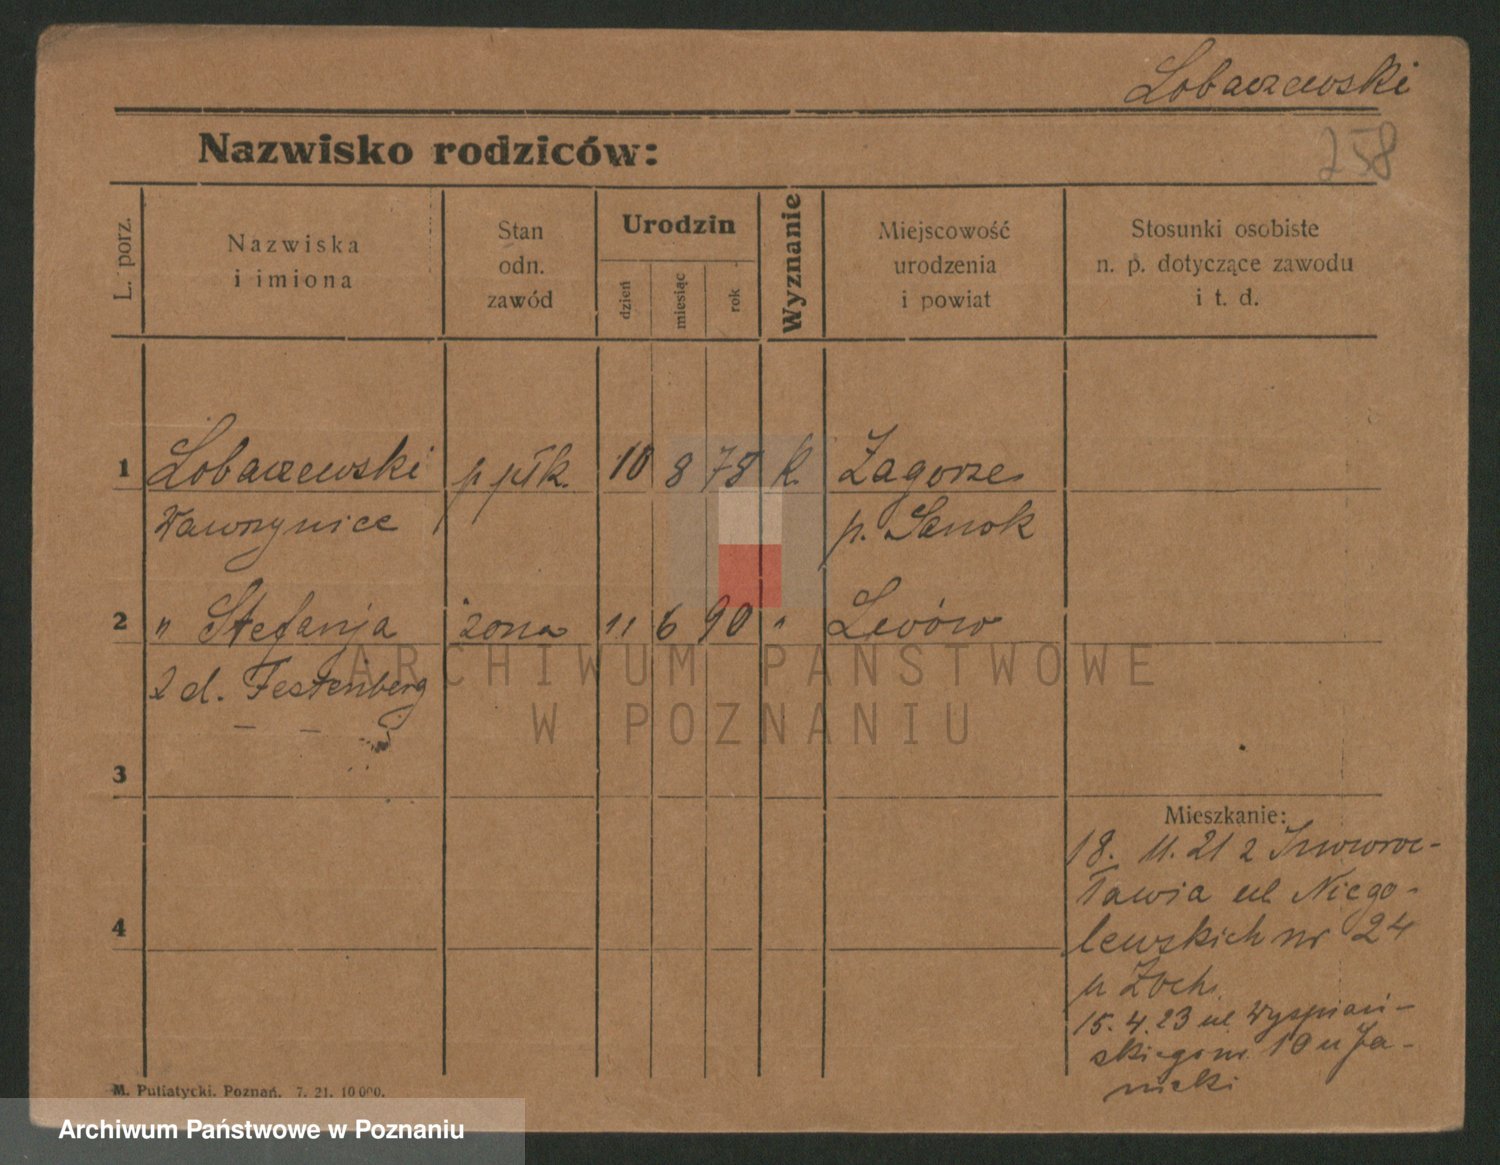 Łobaczewski
258
Nazwisko rodziców:
L. porz.
Nazwiska
i imiona
Stan
odn.
zawód
Urodzin
dzień
miesiąc
rok
Wyznanie
Miejscowość
urodzenia
i powiat
Stosunki osobiste
n. p. dotyczące zawodu
i t. d.
1 Łobaczewski p płk. 10 8 78 K. Zagorze
Wawrzyniec p. Sanok
2 " Stefanja żona 11 6 90 " Lwów
z d. Festenberg
3
4
Mieszkanie:
18. 11. 21 z Inowroc-
ławia ul Niego-
lewskich nr 24
u Zoch.
15. 4. 23 ul Wyspiań-
skiego nr 10 u Ja-
nicki
M. Putiatycki, Poznań. 7. 21. 10 000.
ARCHIWUM PAŃSTWOWE
W POZNANIU
Archiwum Państwowe w Poznaniu